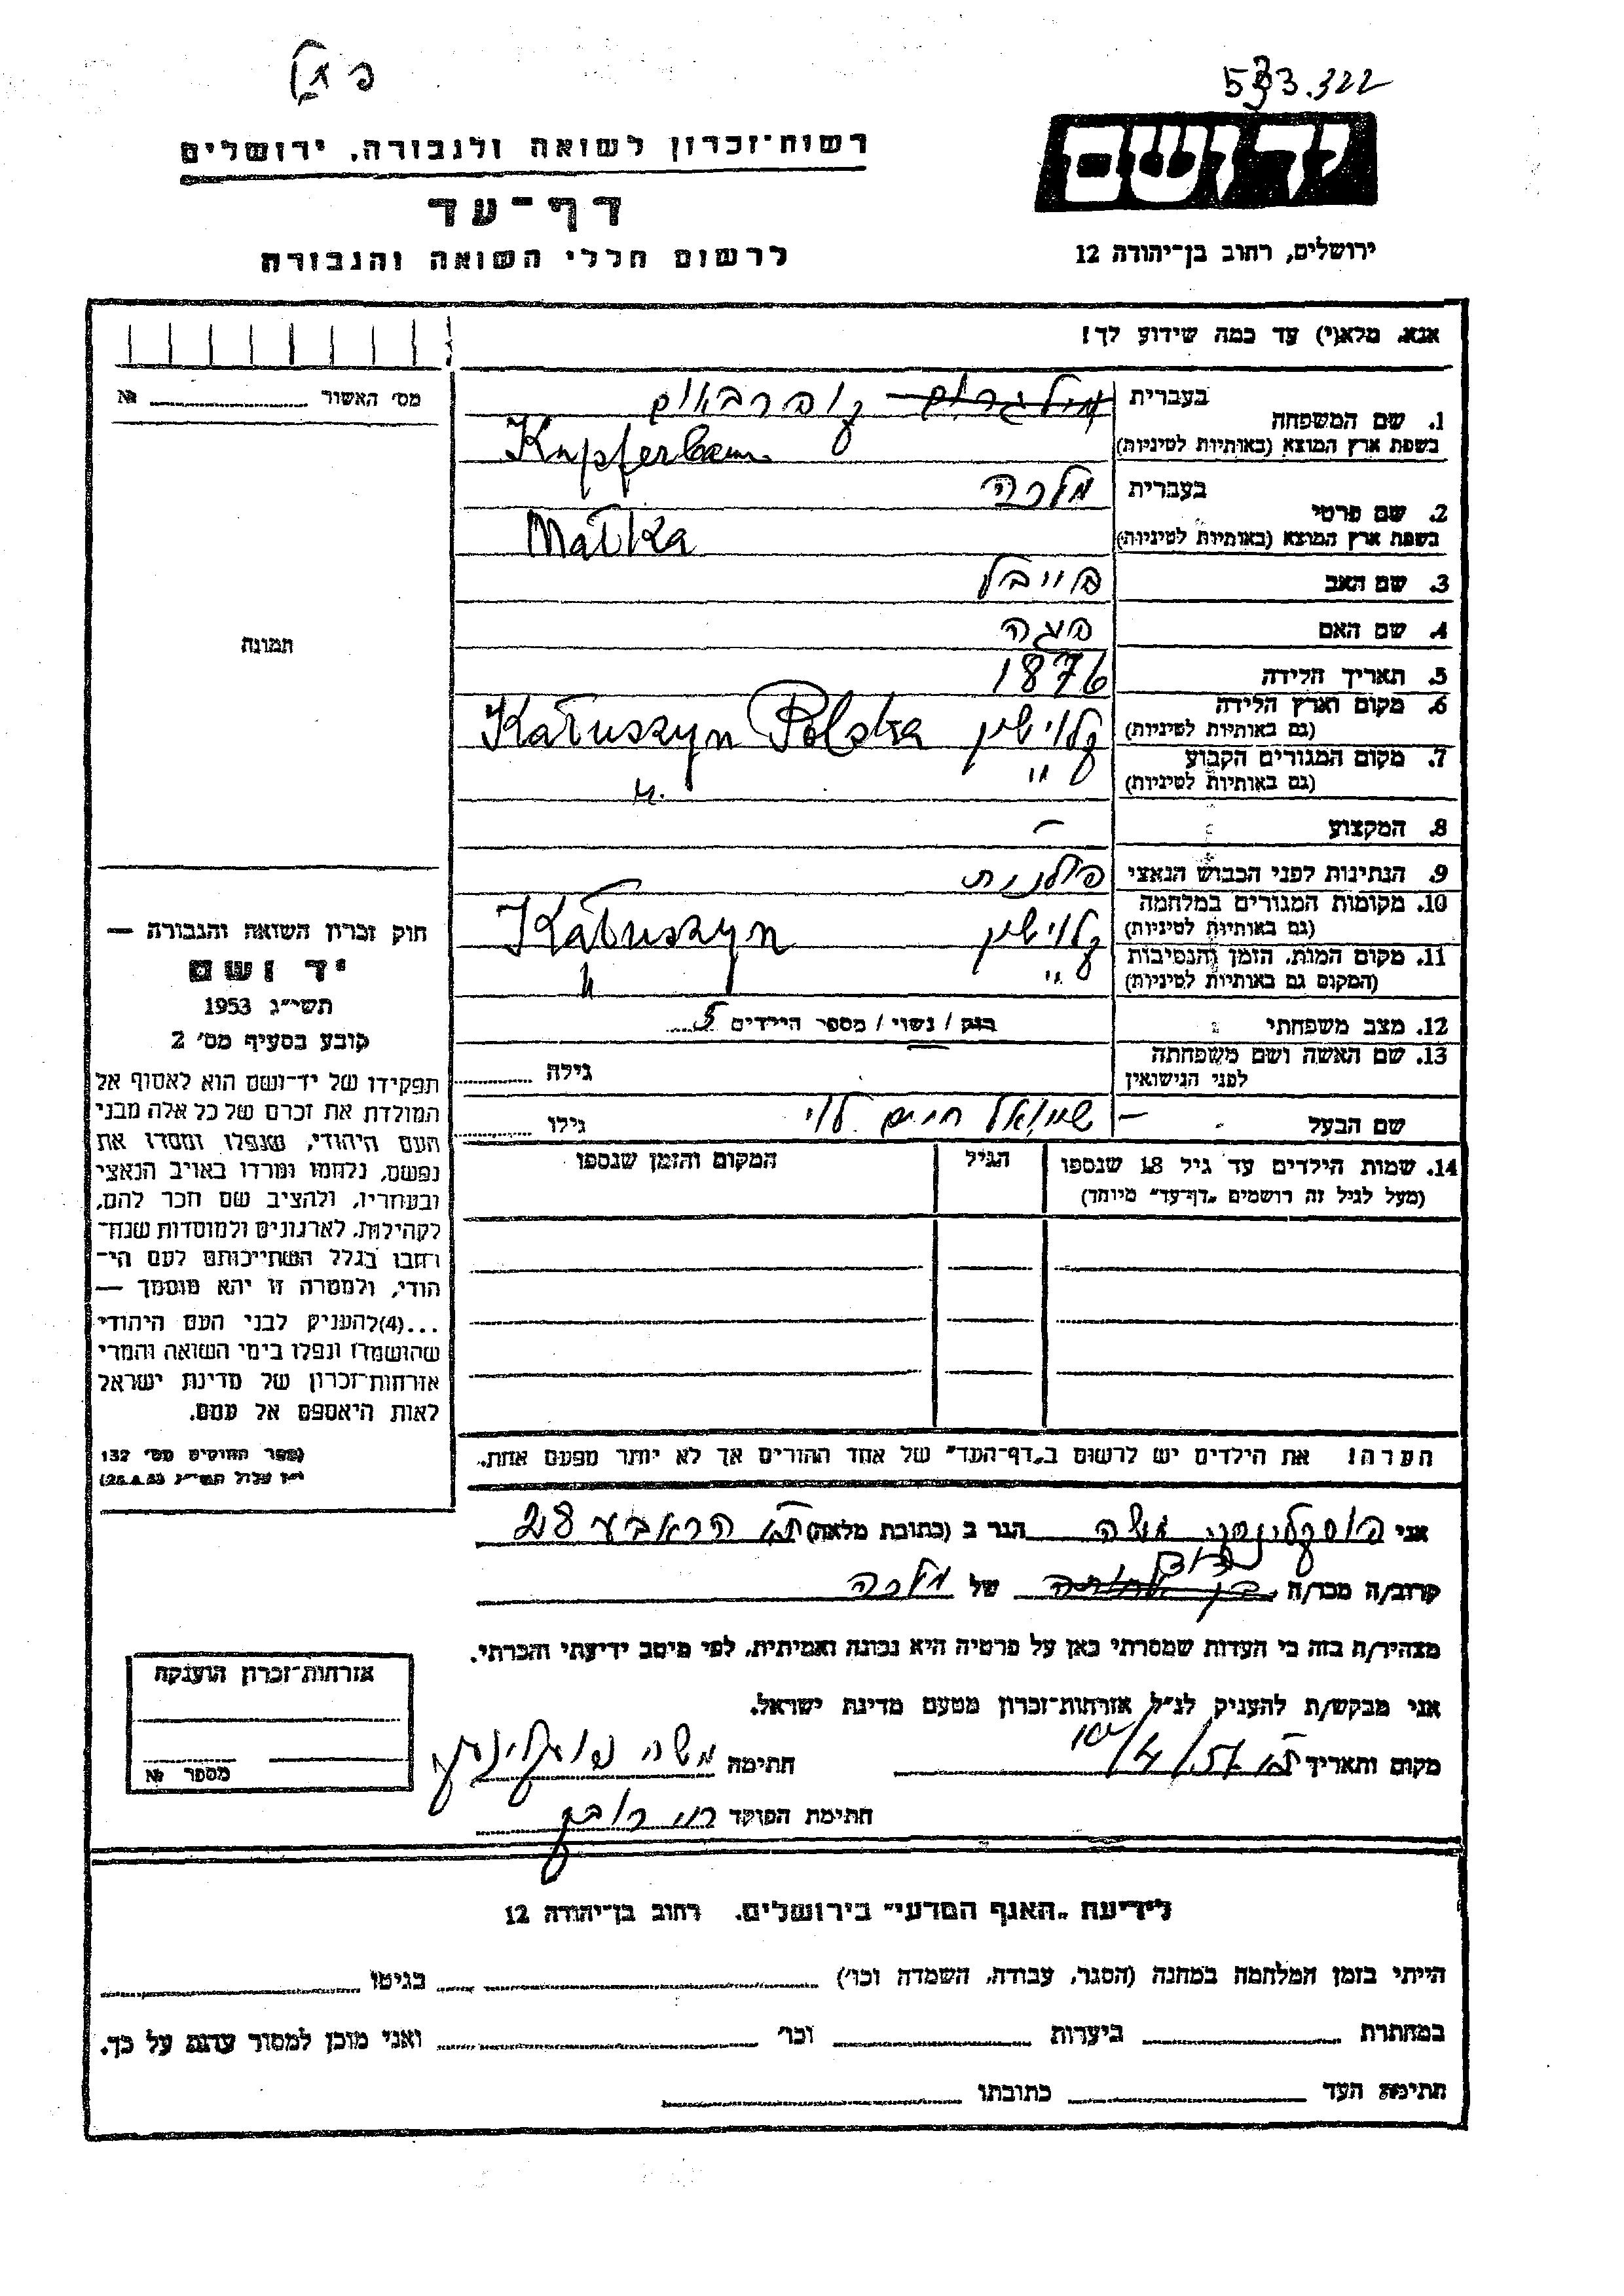 533.322
יד ושם
רשות־זכרון לשואה ולגבורה, ירושלים
דף־עד
לרשום חללי השואה והגבורה
ירושלים, רחוב בן־יהודה 12
אנא, מלא(י) עד כמה שידוע לך!
מס׳ האשור № 
1. שם המשפחה
בעברית קופרבאום
בשפת ארץ המוצא (באותיות לטיניות) Kupferbaum
2. שם פרטי
בעברית מלכה
בשפת ארץ המוצא (באותיות לטיניות) Małka
3. שם האב פייבל
4. שם האם
5. תאריך הלידה 1876
6. מקום וארץ הלידה (גם באותיות לטיניות) קלושין Kałuszyn Polska
7. מקום המגורים הקבוע (גם באותיות לטיניות) " "
8. המקצוע –
9. הנתינות לפני הכבוש הנאצי פולנית
10. מקומות המגורים במלחמה (גם באותיות לטיניות) קלושין Kałuszyn
11. מקום המות, הזמן והנסיבות (המקום גם באותיות לטיניות) " "
12. מצב משפחתי רווק / נשוי / מספר הילדים 5
13. שם האשה ושם משפחתה לפני הנישואין גילה
שם הבעל – שמואל חיים לוי גילו
14. שמות הילדים עד גיל 18 שנספו הגיל המקום והזמן שנספו
(מעל לגיל זה רושמים „דף־עד” מיוחד)
הערה: את הילדים יש לרשום ב„דף־העד” של אחד ההורים אך לא יותר מפעם אחת.
תמונה
חוק זכרון השואה והגבורה —
יד ושם
תשי״ג 1953
קובע בסעיף מס׳ 2
תפקידו של יד־ושם הוא לאסוף אל
המולדת את זכרם של כל אלה מבני
העם היהודי, שנפלו ומסרו את
נפשם, נלחמו ומרדו באויב הנאצי
ובעוזריו, ולהציב שם וזכר להם,
לקהילות, לארגונים ולמוסדות שנח־
רבו בגלל השתייכותם לעם הי־
הודי, ולמטרה זו יהא מוסמך —
...(4) להעניק לבני העם היהודי
שהושמדו ונפלו בימי השואה והמרי
אזרחות־זכרון של מדינת ישראל
לאות היאספם אל עמם.
(ספר החוקים מס׳ 132
י״ז אלול תשי״ג 28.8.53)
אני משה הגר ב (כתובת מלאה) ת״א
קרוב/ה מכר/ה של מלכה
מצהיר/ה בזה כי העדות שמסרתי כאן על פרטיה היא נכונה ואמיתית, לפי מיטב ידיעתי והכרתי.
אני מבקש/ת להעניק לנ״ל אזרחות־זכרון מטעם מדינת ישראל.
מקום ותאריך ת״א חתימה משה
חתימת הפוקד
אזרחות־זכרון הוענקה
מספר №
לידיעת „האגף המדעי” בירושלים, רחוב בן־יהודה 12
הייתי בזמן המלחמה במחנה (הסגר, עבודה, השמדה וכו׳) בגיטו
במחתרת ביערות וכו׳ ואני מוכן למסור עדות על כך.
חתימת העד כתובתו